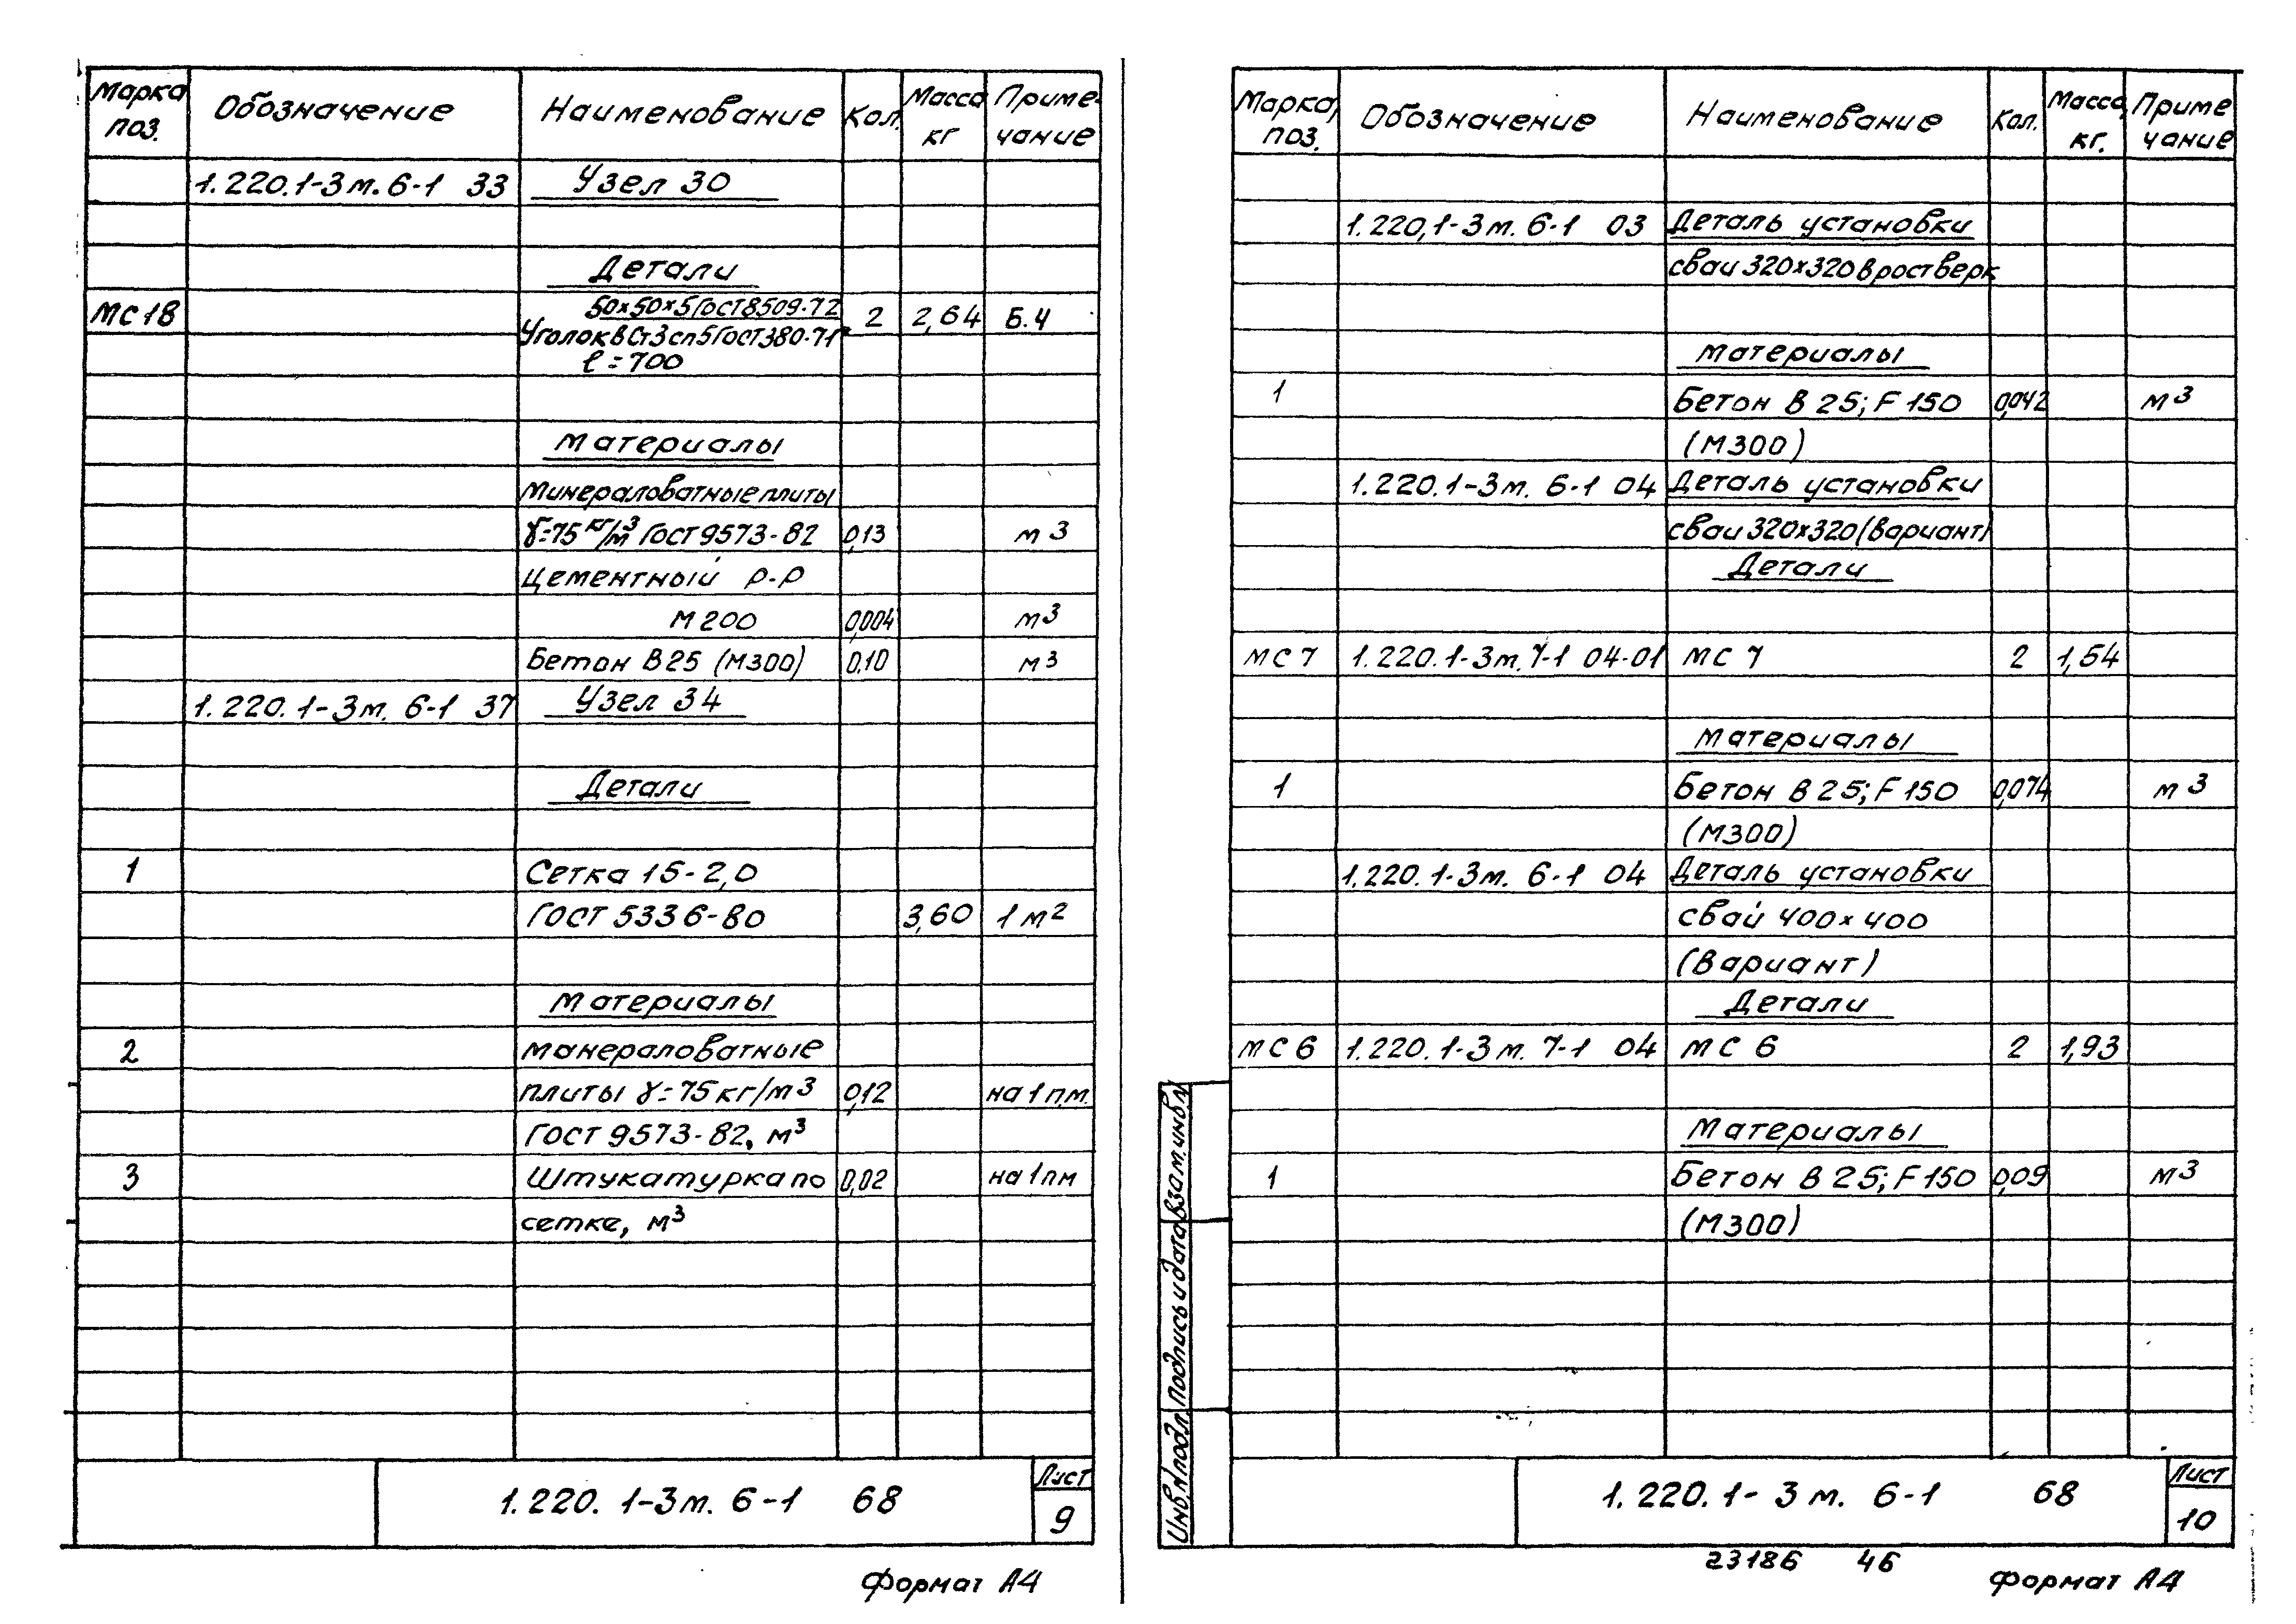 Марка поз. Обозначение Наименование Кол. Масса кг Приме-чание
1.220.1-3м.6-1 33 Узел 30
Детали
50×50×5 ГОСТ 8509-72
МС18 Уголок ВСт3сп5 ГОСТ 380-71* 2 2,64 Б.Ч
ℓ=700
Материалы
Минераловатные плиты
γ=75 кг/м³ ГОСТ 9573-82 0,13 м3
Цементный р-р
М200 0,004 м3
Бетон В25 (М300) 0,10 м3
1.220.1-3м.6-1 37 Узел 34
Детали
1 Сетка 15-2,0
ГОСТ 5336-80 3,60 1 м2
Материалы
2 Манераловатные
плиты γ=75 кг/м3 0,12 на 1 п.м.
ГОСТ 9573-82, м³
3 Штукатурка по 0,02 на 1 пм
сетке, м³
1.220.1-3м.6-1 68 Лист 9
Формат А4
Марка, поз. Обозначение Наименование Кол. Масса, кг. Приме чание
1.220,1-3м.6-1 03 Деталь установки
сваи 320×320 в ростверк
Материалы
1 Бетон В25; F150 0,042 м3
(М300)
1.220.1-3м.6-1 04 Деталь установки
сваи 320×320 (вариант)
Детали
МС7 1.220.1-3м.7-1 04-01 МС7 2 1,54
Материалы
1 Бетон В25; F150 0,074 м3
(М300)
1.220.1-3м.6-1 04 Деталь установки
свай 400×400
(Вариант)
Детали
МС6 1.220.1-3м.7-1 04 МС6 2 1,93
Материалы
1 Бетон В25; F150 0,09 м3
(М300)
Инв.№подл. Подпись и дата Взам.инв.№
1.220.1-3м.6-1 68 Лист 10
23186 46
Формат А4